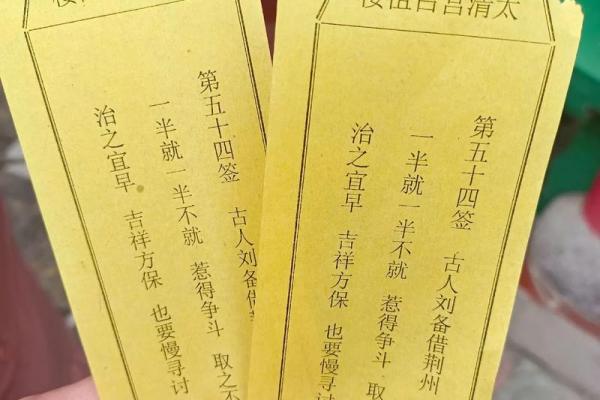 太清宫吕祖楼
第五十四签 古人刘备借荆州
一半就一半不就 惹得争斗 取
治之宜早 吉祥方保 也要慢寻讨
第五十四签 古人刘备借
一半就一半不就 惹得争斗 取之不
治之宜早 吉祥方保 也要慢寻讨